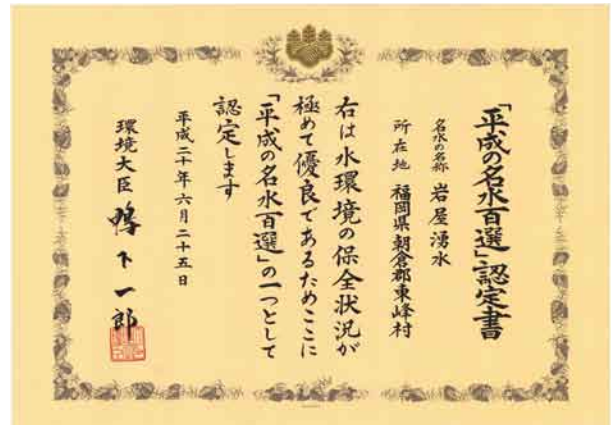 「平成の名水百選」認定書
名水の名称 岩屋湧水
所在地 福岡県朝倉郡東峰村
右は水環境の保全状況が
極めて優良であるためここに
「平成の名水百選」の一つとして
認定します
平成二十年六月二十五日
環境大臣 鴨下一郎